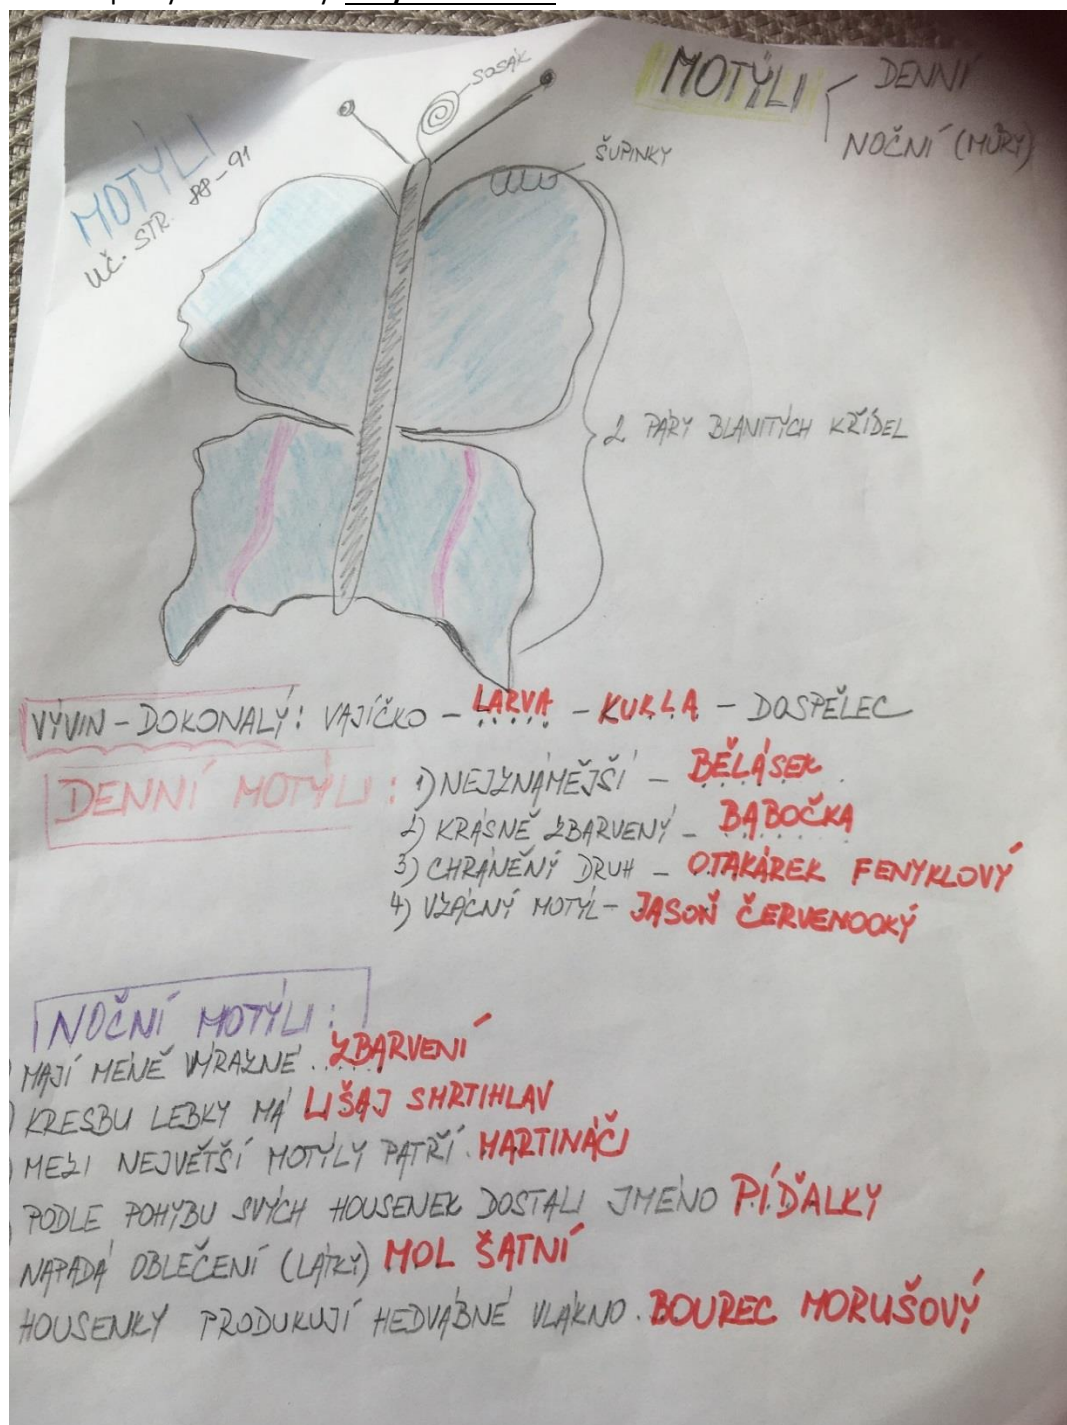 SOSÁK
MOTÝLI
DENNÍ
NOČNÍ (MŮRY)
MOTÝLI
UČ. STR. 88-91
ŠUPINKY
2 PÁRY BLANITÝCH KŘÍDEL
VÝVIN - DOKONALÝ: VAJÍČKO - LARVA - KUKLA - DOSPĚLEC
DENNÍ MOTÝLI: 1) NEJZNÁMĚJŠÍ - BĚLÁSEK
2) KRÁSNĚ ZBARVENÝ - BABOČKA
3) CHRÁNĚNÝ DRUH - OTAKÁREK FENYKLOVÝ
4) VZÁCNÝ MOTÝL - JASOŇ ČERVENOOKÝ
NOČNÍ MOTÝLI:
MAJÍ MÉNĚ VÝRAZNÉ ZBARVENÍ
KRESBU LEBKY MÁ LIŠAJ SMRTIHLAV
MEZI NEJVĚTŠÍ MOTÝLY PATŘÍ MARTINÁČI
PODLE POHYBU SVÝCH HOUSENEK DOSTALI JMÉNO PÍĎALKY
NAPADÁ OBLEČENÍ (LÁTKY) MOL ŠATNÍ
HOUSENKY PRODUKUJÍ HEDVÁBNÉ VLÁKNO. BOUREC MORUŠOVÝ